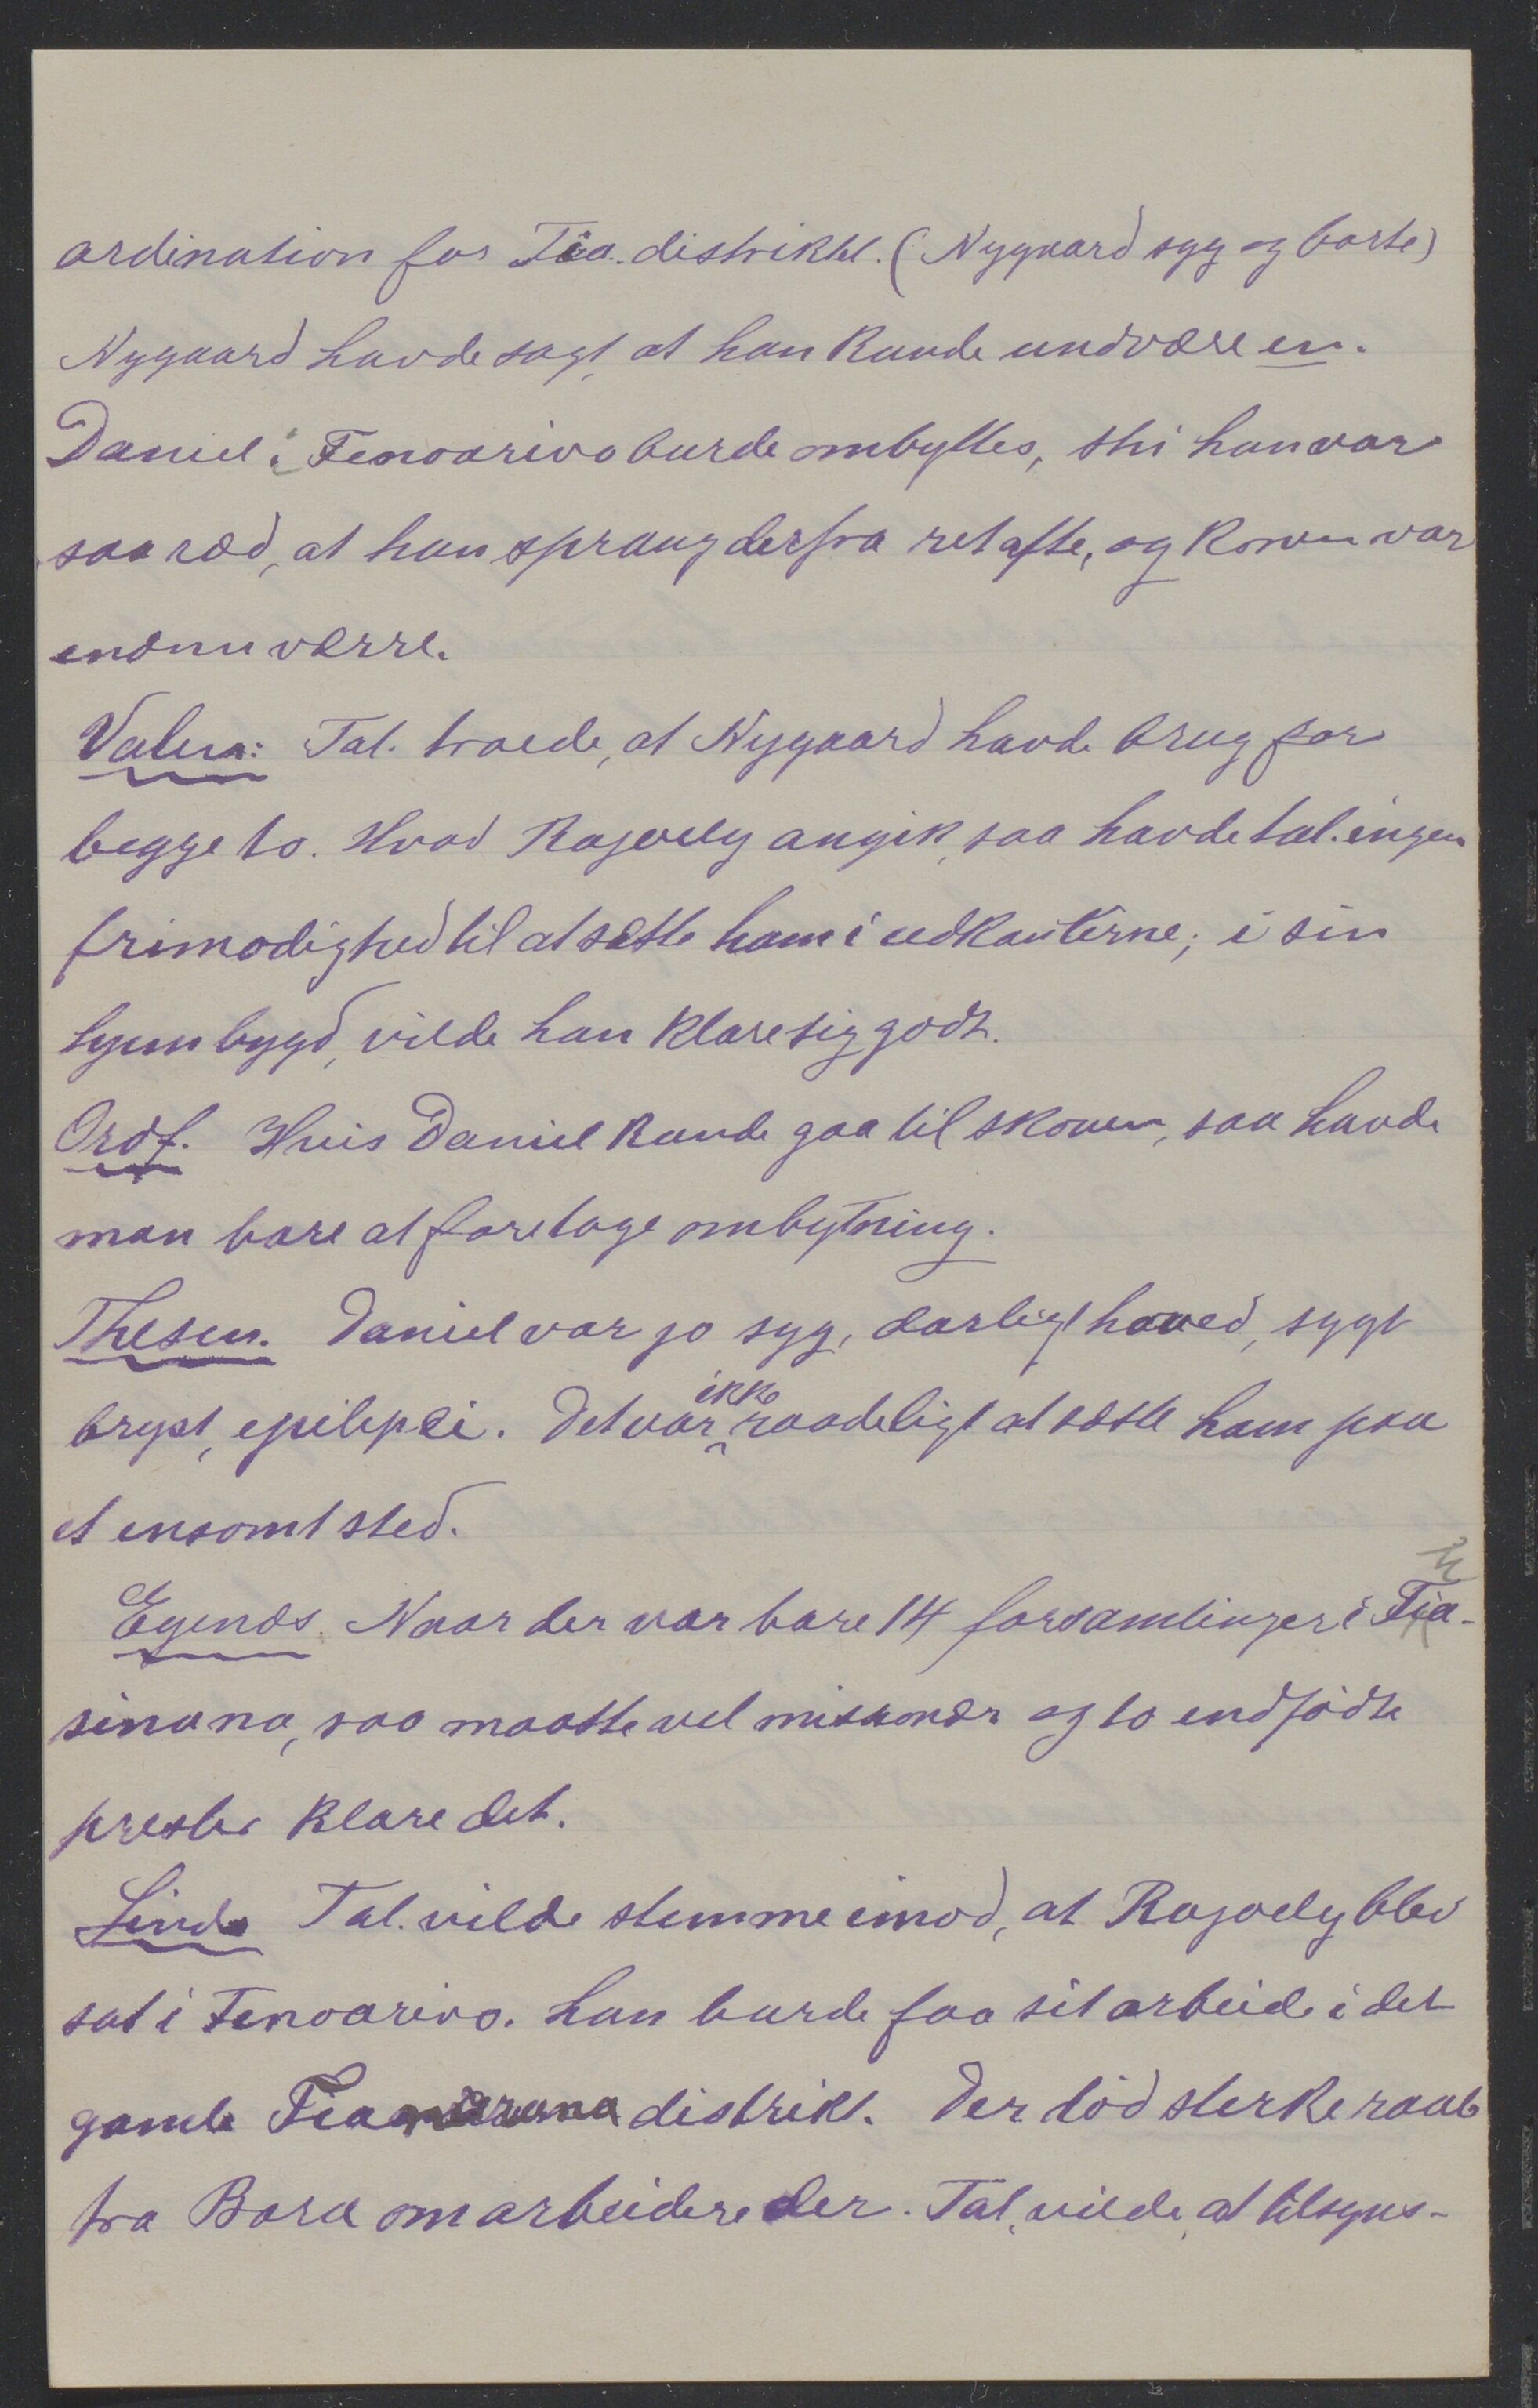 ordination for Fia. distriktet. (Nygaard syg og borte)
Nygaard havde sagt, at han kunde undvære en.
Daniel i Fenoarivo burde ombyttes, thi han var
saa ræd, at han sprang derfra ret ofte, og konen var
endnu værre.
Valen: Tal. troede, at Nygaard havde brug for
begge to. Hvad Rajoely angik, saa havde tal. ingen
frimodighed til at sætte ham i udkanterne; i sin
hjembygd, vilde han klare sig godt.
Ordf. Hvis Daniel kunde gaa til skoven, saa havde
man bare at foretage ombytning.
Thesen. Daniel var jo syg, darligt hoved, sygt
bryst, epilepsi. Det var ikke raadeligt at sætte ham paa
et ensomt sted.
Egenæs. Naar der var bare 14 forsamlinger i Fia-
sinana, saa maatte vel missionær og to indfødte
prester klare det.
Linds Tal. vilde stemme imod, at Rajoely blev
sat i Fenoarivo. han burde faa sit arbeide i det
gamle distrikt. Der lød sterke raab
fra Bara om arbeidere der. Tal. vilde, at tilsyns-